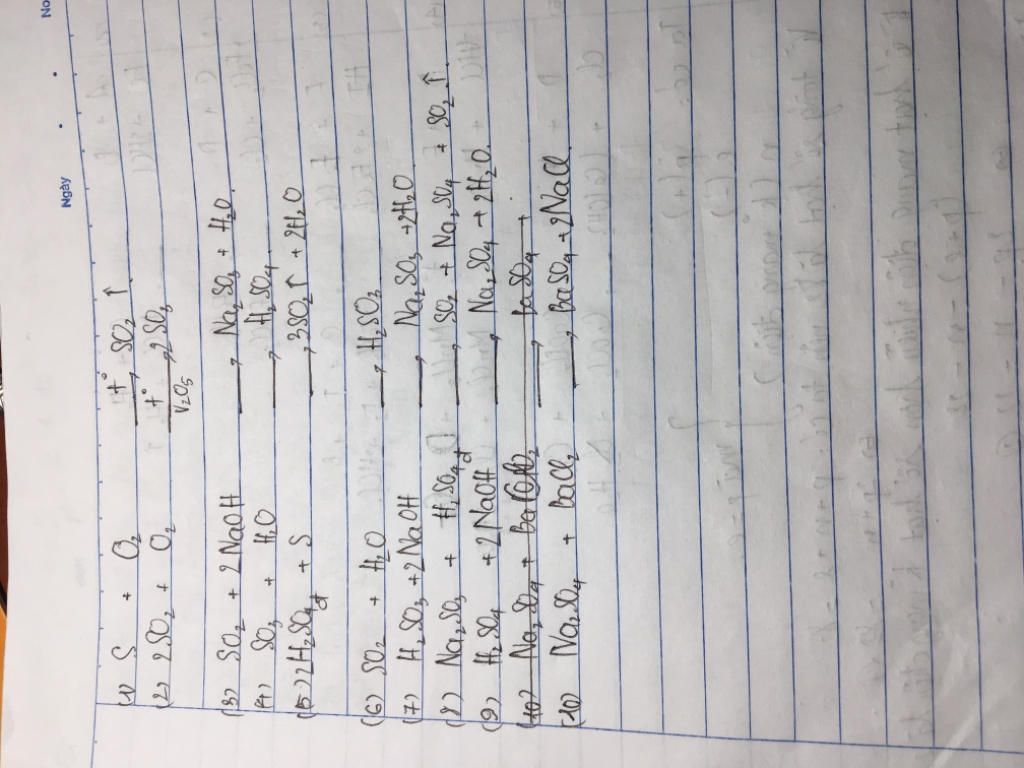 Ngày
No
(1) S + O₂ —t°→ SO₂ ↑
(2) 2SO₂ + O₂ —t°, V₂O₅→ 2SO₃
(3) SO₂ + 2NaOH → Na₂SO₃ + H₂O.
(4) SO₃ + H₂O → H₂SO₄.
(5) 2H₂SO₄ đ + S → 3SO₂ ↑ + 2H₂O
(6) SO₂ + H₂O → H₂SO₃
(7) H₂SO₃ + 2NaOH → Na₂SO₃ + 2H₂O
(8) Na₂SO₃ + H₂SO₄ đ → SO₂ + Na₂SO₄ + SO₂ ↑
(9) H₂SO₄ + 2NaOH → Na₂SO₄ + 2H₂O.
(10) Na₂SO₄ + BaCl₂ → BaSO₄ + 2NaCl.